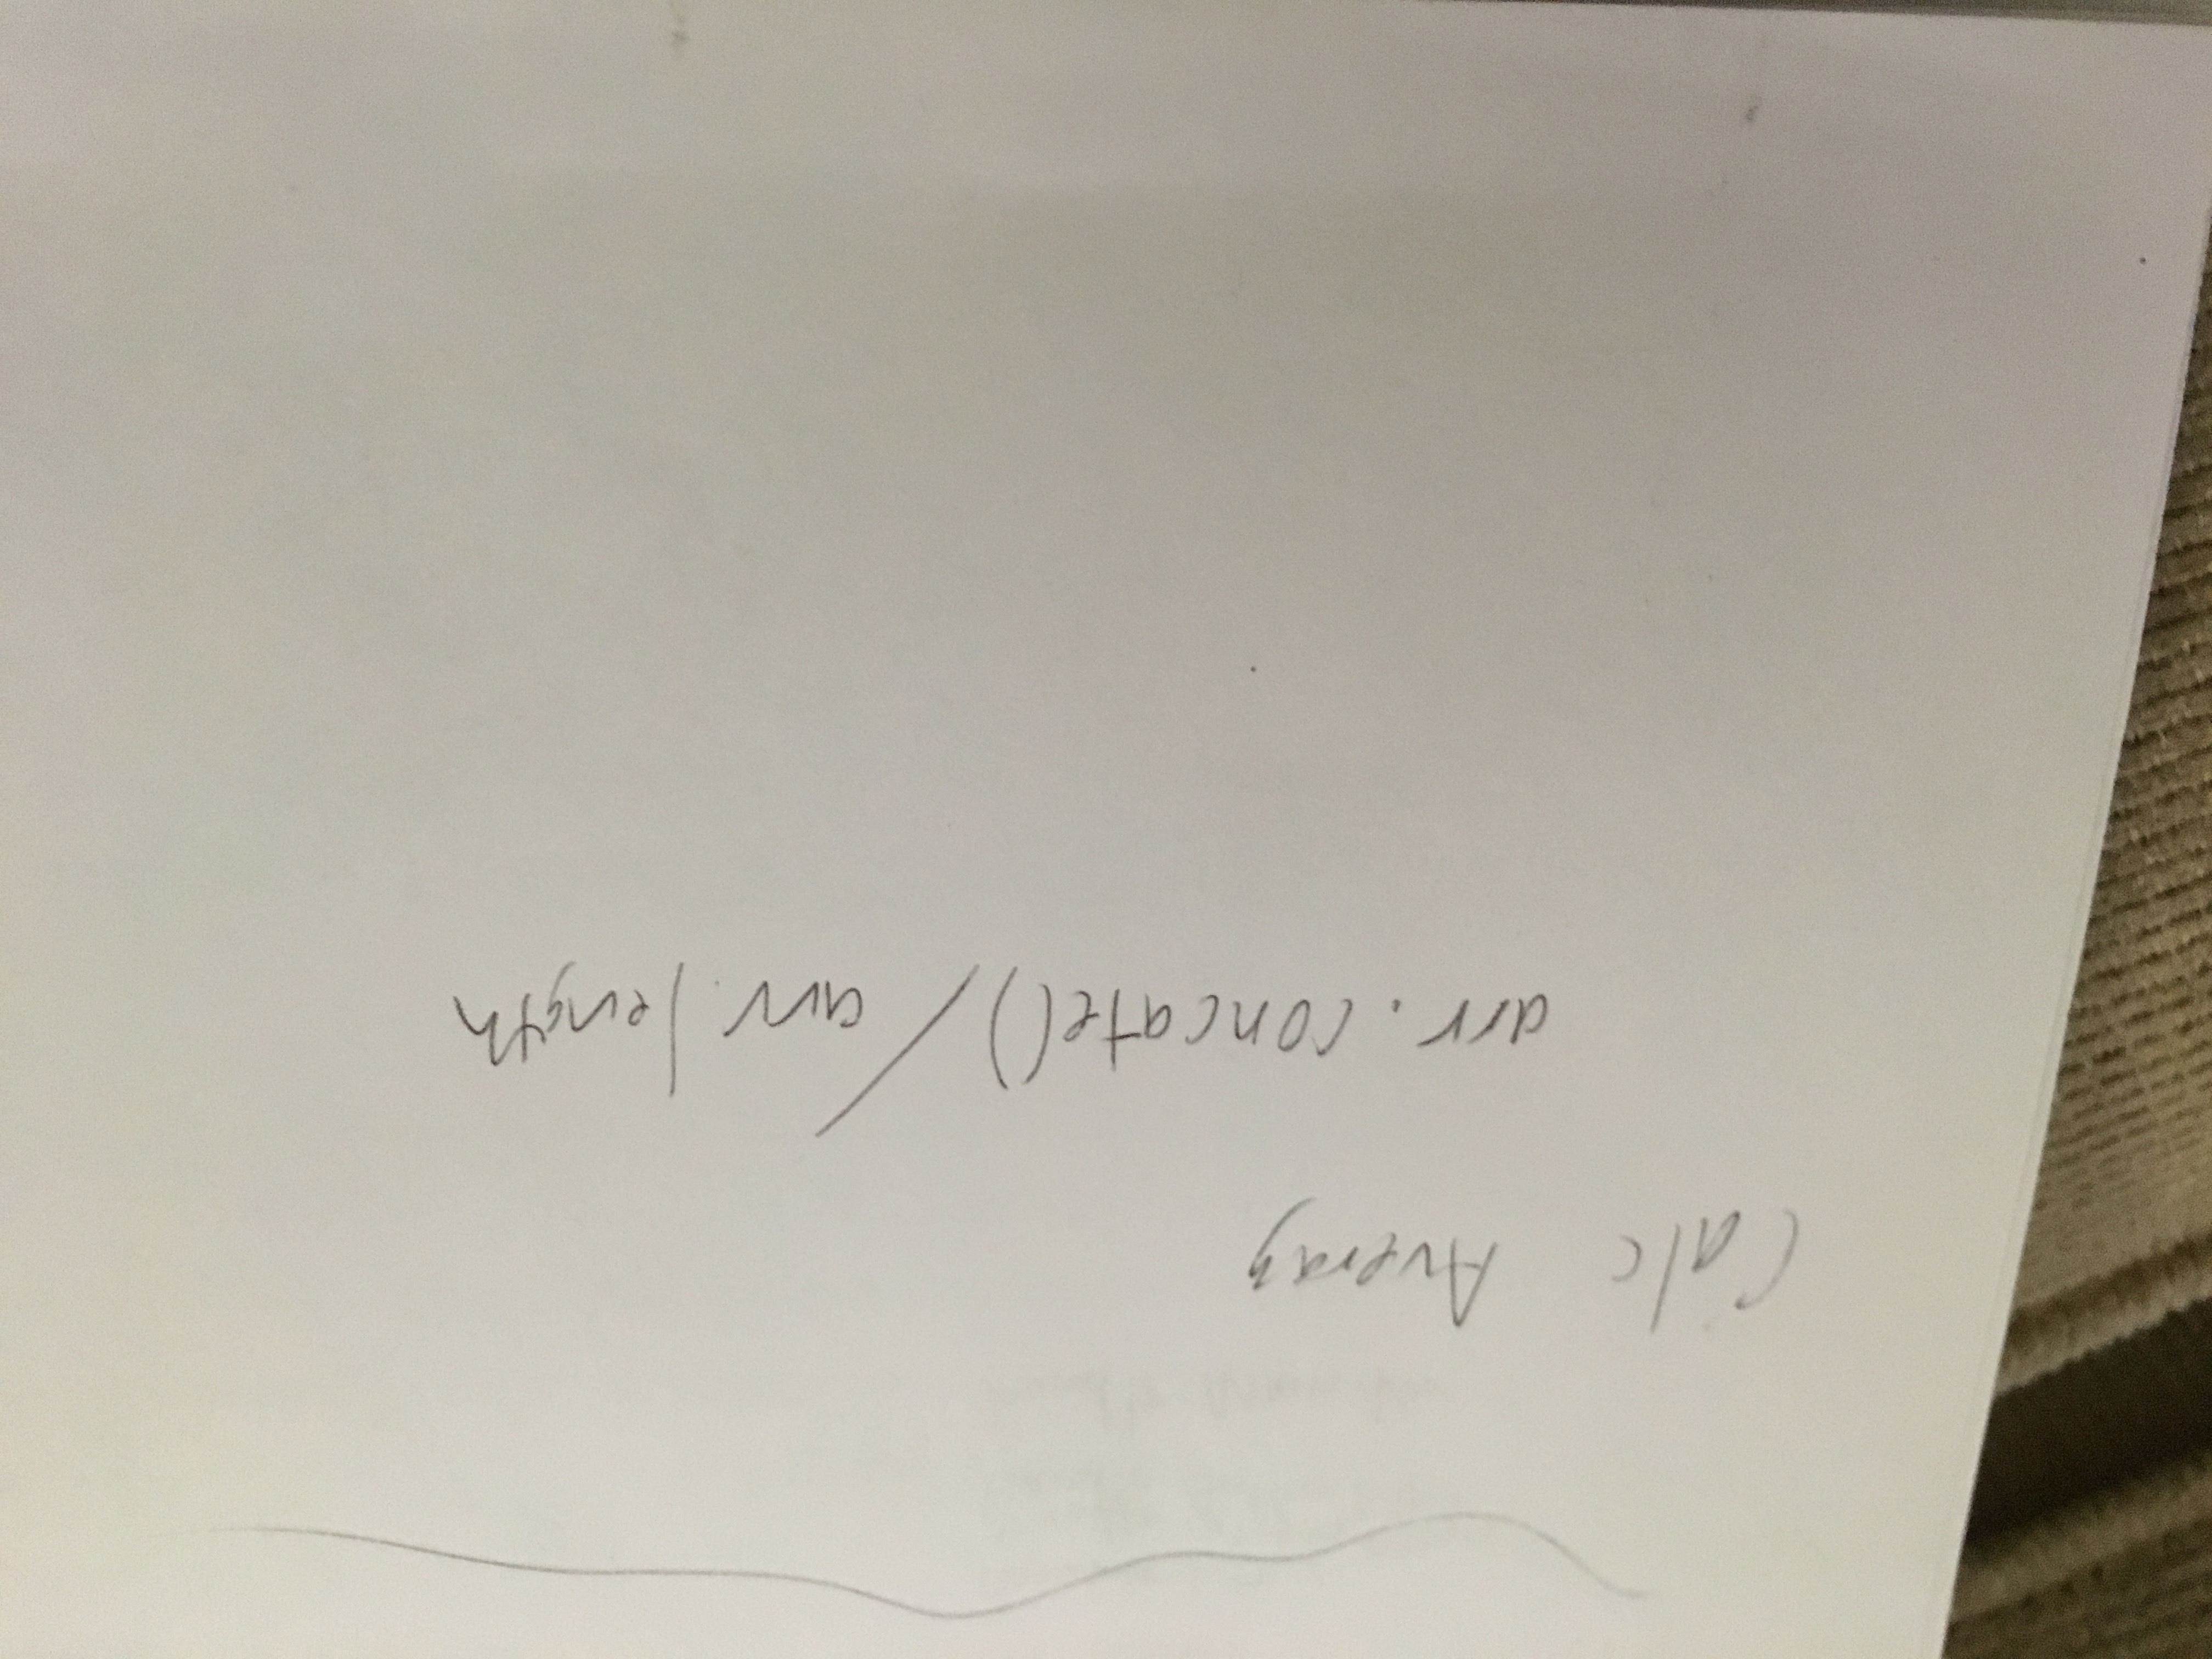 Calc Averag
arr.concate()/arr.length